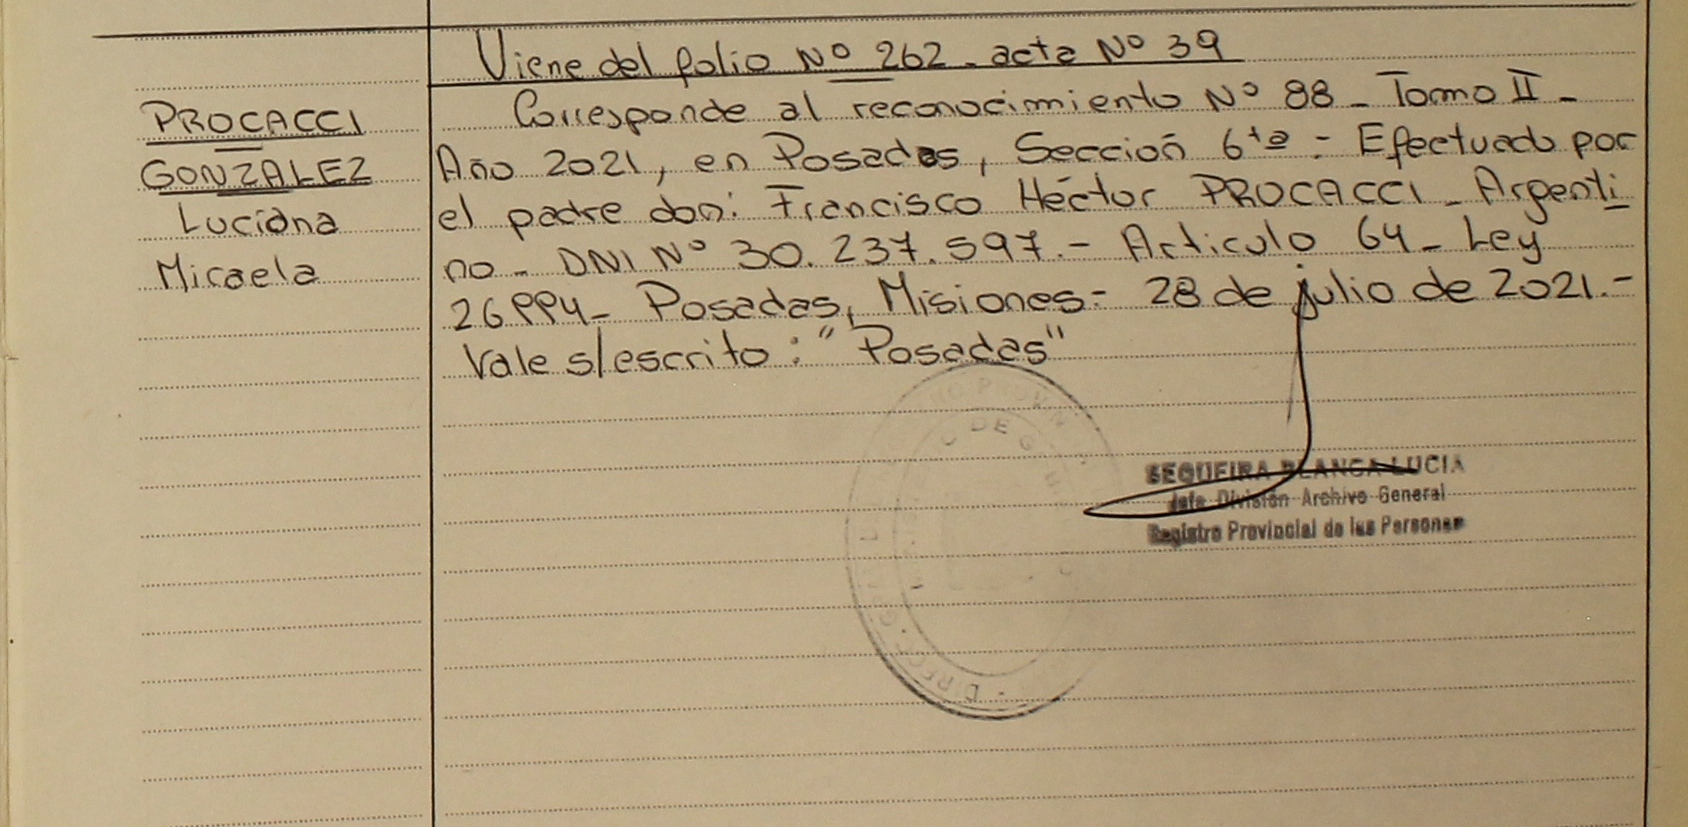 Viene del folio Nº 262 - acta Nº 39
PROCACCI
GONZALEZ
Luciana
Micaela
Corresponde al reconocimiento Nº 88 - Tomo II -
Año 2021, en Posadas, Sección 6ta - Efectuado por
el padre don: Francisco Héctor PROCACCI - Argenti
no - DNI Nº 30.237.597.- Articulo 64 - Ley
26994 - Posadas, Misiones - 28 de julio de 2021.-
Vale s/escrito: "Posadas"
SEQUEIRA BLANCA LUCIA
Jefe División Archivo General
Registro Provincial de las Personas